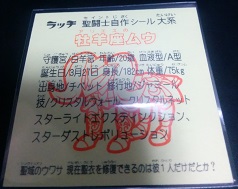 ラッチ 聖闘士自作シール大系
牡羊座ムウ
守護宮/白羊宮 年齢/20歳 血液型/A型
誕生日/3月27日 身長/182cm 体重/75kg
出身地/チベット 修行地/ジャミール
技/クリスタルウォール・クリスタルネット
スターライトエクスティンクション、
スターダストレボリューション
聖域のウワサ 現在聖衣を修復できるのは彼1人だけだとか?